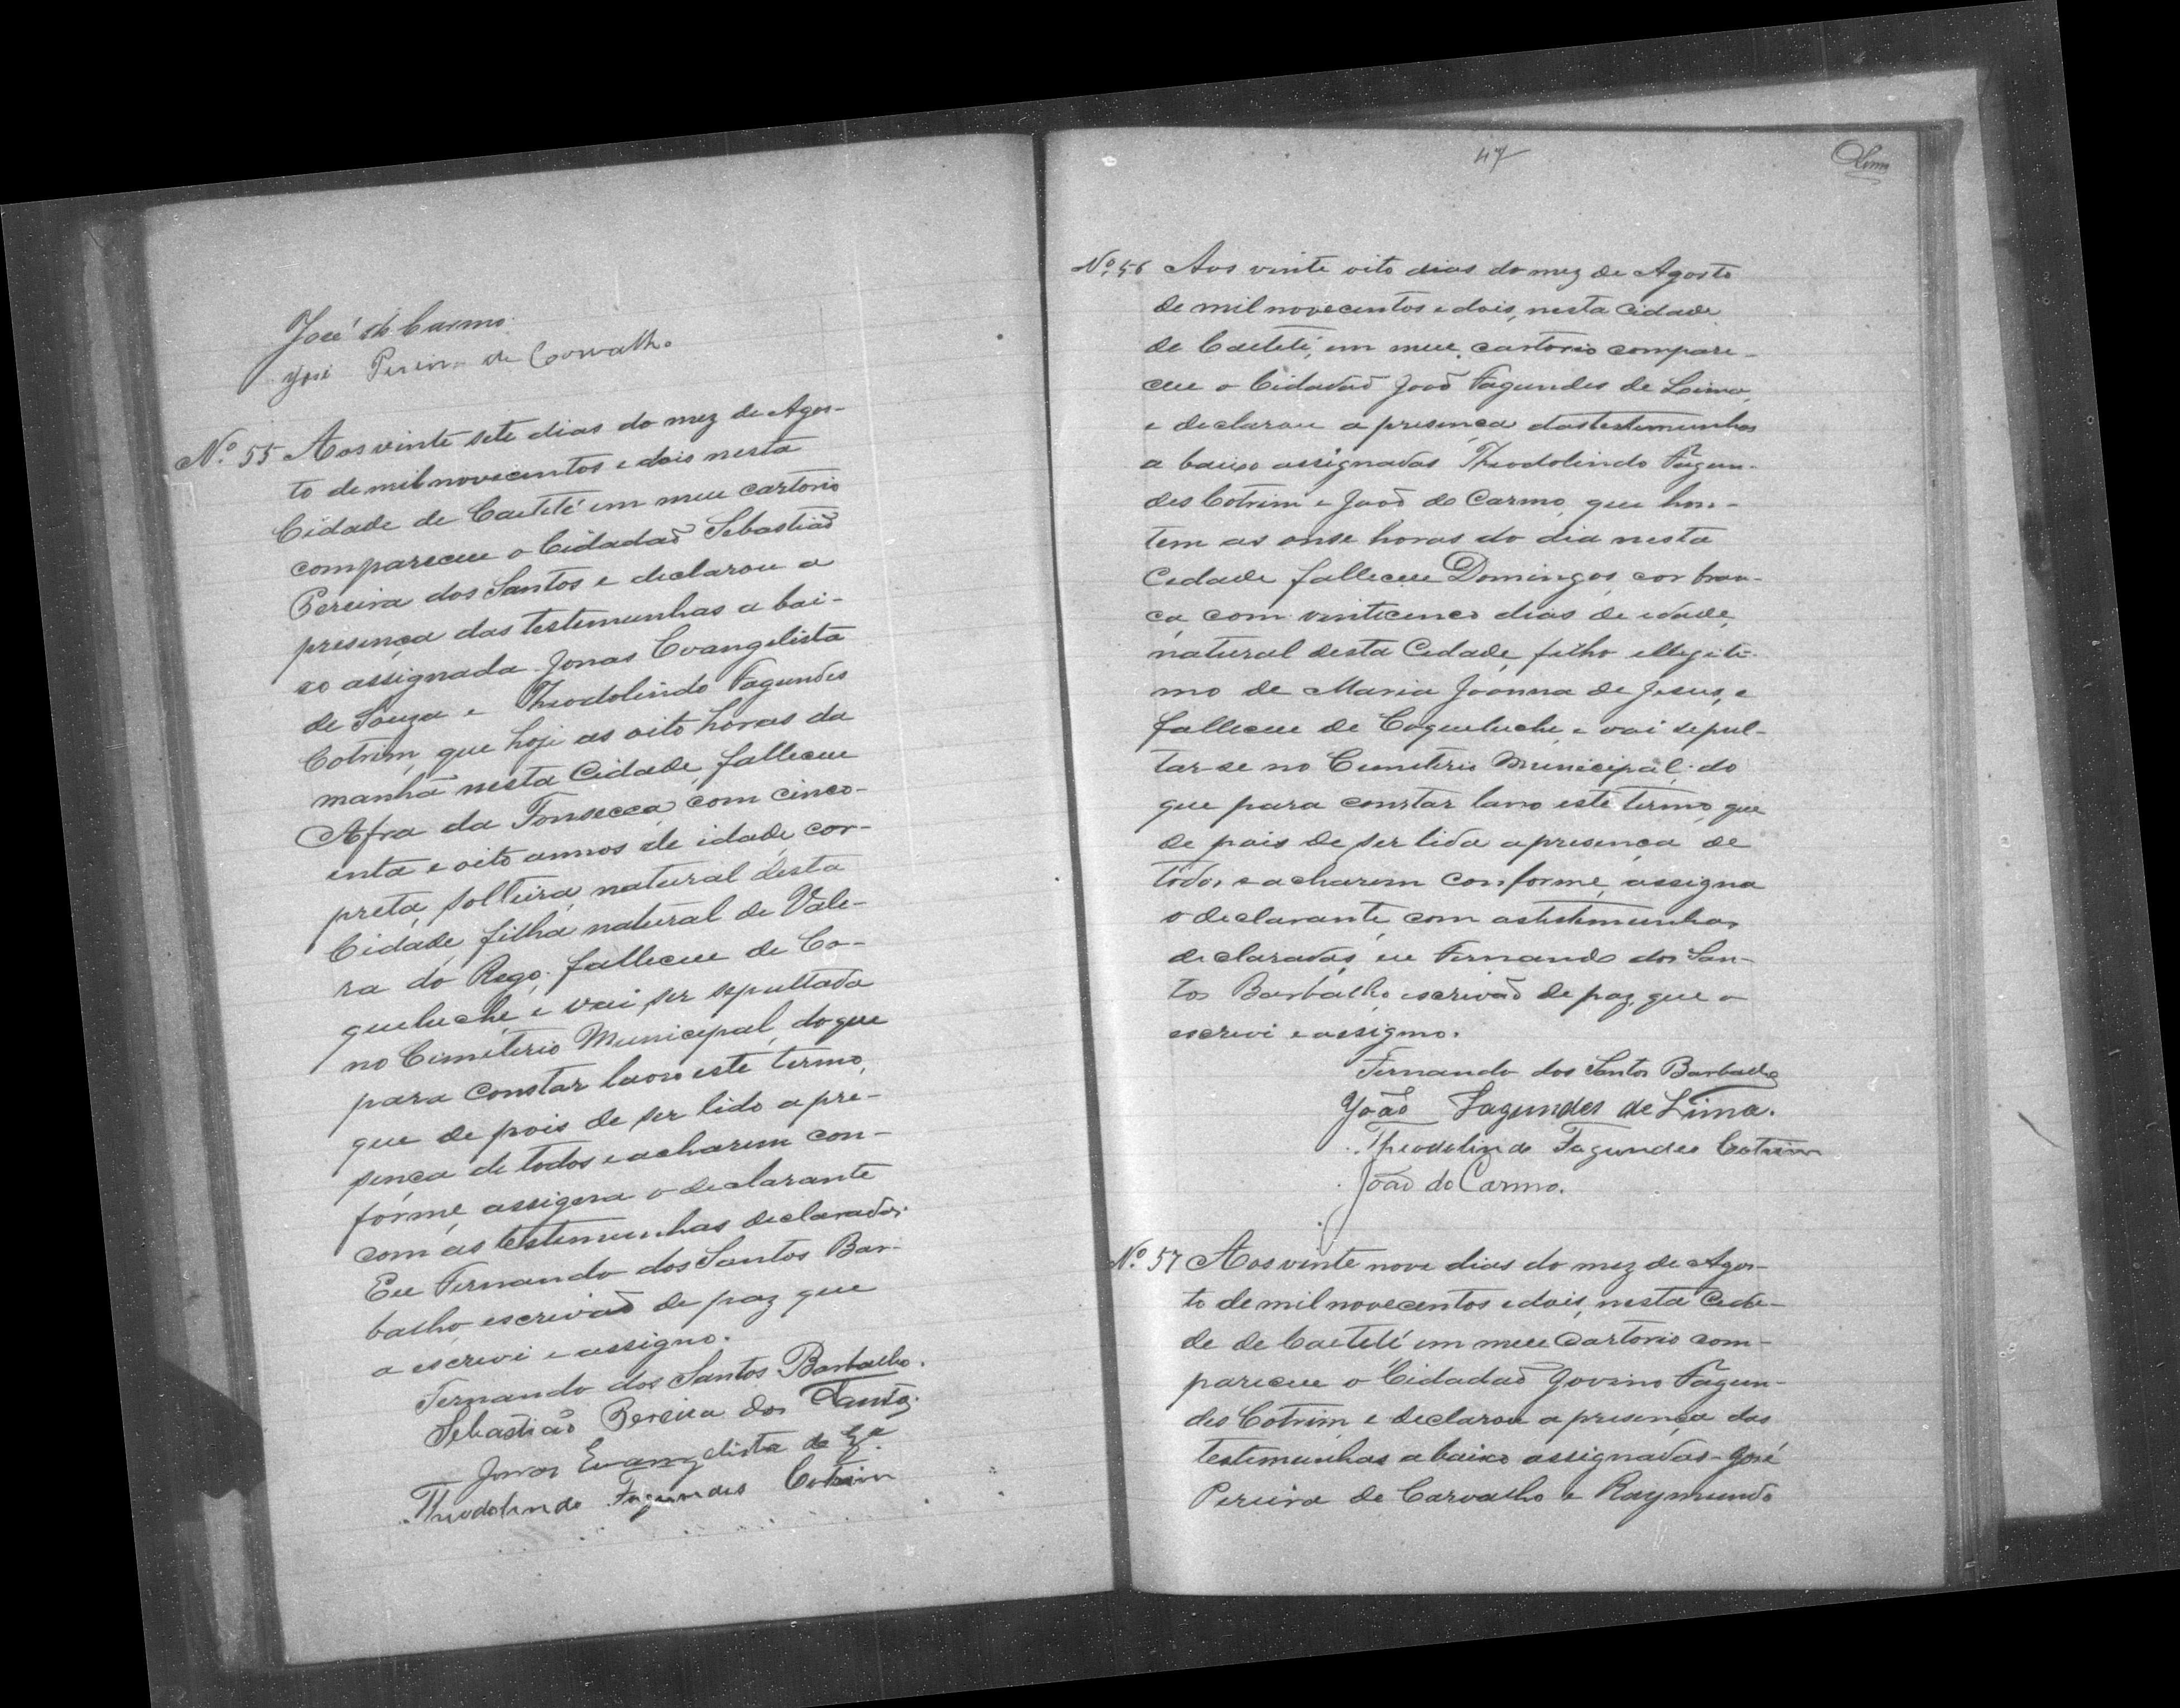 José do Carmo
José Pereira de Carvalho
Nº 55 Aos vinte sete dias do mez de Agos-
to de mil novecentos e dois nesta
Cidade de Caeteté em meu cartorio
compareceu o Cidadaõ Sebastiaõ
Pereira dos Santos e declarou a
presença das testemunhas a bai-
xo assignada Jonas Evangelista
de Souza e Theodolindo Fagundes
Cotrim, que hoje as oito horas da
manhã nesta Cidade, falleceu
Afra da Fonsecca, com cinco-
enta e oito annos de idade, cor-
preta, solteira, natural desta
Cidade, filha natural de Vale-
ra do Rego, falleceu de Co-
queluche, e vai ser sepultada
no Cimiterio Municipal, do que
para constar lavro este termo,
que de pois de ser lido a pre-
sença de todos e acharem con-
forme, assigna o declarante
com as testemunhas declaradas.
Eu Fernando dos Santos Bar-
balho, escrivaõ de paz que
a escrevi e assigno.
Fernando dos Santos Barbalho.
Sebastião Pereira dos Santos.
Jonas Evangelista de Sza
Theodolindo Fagundes Cotrim
47
Lima
Nº 56 Aos vinte oito dias do mez de Agosto
de mil novecentos e dois, nesta Cidade
de Caeteté, em meu cartorio compare-
ceu o Cidadaõ Joaõ Fagundes de Lima,
e declarou a presença das testemunhas
a baixo assignadas Theodolindo Fagun-
des Cotrim e Joaõ do Carmo, que hon-
tem as onse horas do dia nesta
Cidade falleceu Domingos, cor bran-
ca, com vinticinco dias de idade,
natural desta Cidade, filho illegiti-
mo de Maria Joanna de Jesus, e
falleceu de Coqueluche, e vai sepul-
tar-se no Cemeterio Municipal, do
que para constar lavro este termo, que
de pois de ser lida a presença de
todos e acharem conforme, assigna
o declarante, com as testemunhas
declaradas, eu Fernando dos San-
tos Barbalho, escrivaõ de paz, que a
escrevi e assigno.
Fernando dos Santos Barbalho
João Fagundes de Lima.
Theodolindo Fagundes Cotrim
João do Carmo.
Nº 57 Aos vinte nove dias do mez de Agos-
to de mil novecentos e dois, nesta Cida-
de de Caeteté em meu Cartorio com-
pareceu o Cidadaõ Jovino Fagun-
des Cotrim e declarou a presença das
testemunhas a baixo assignadas-José
Pereira de Carvalho e Raymundo